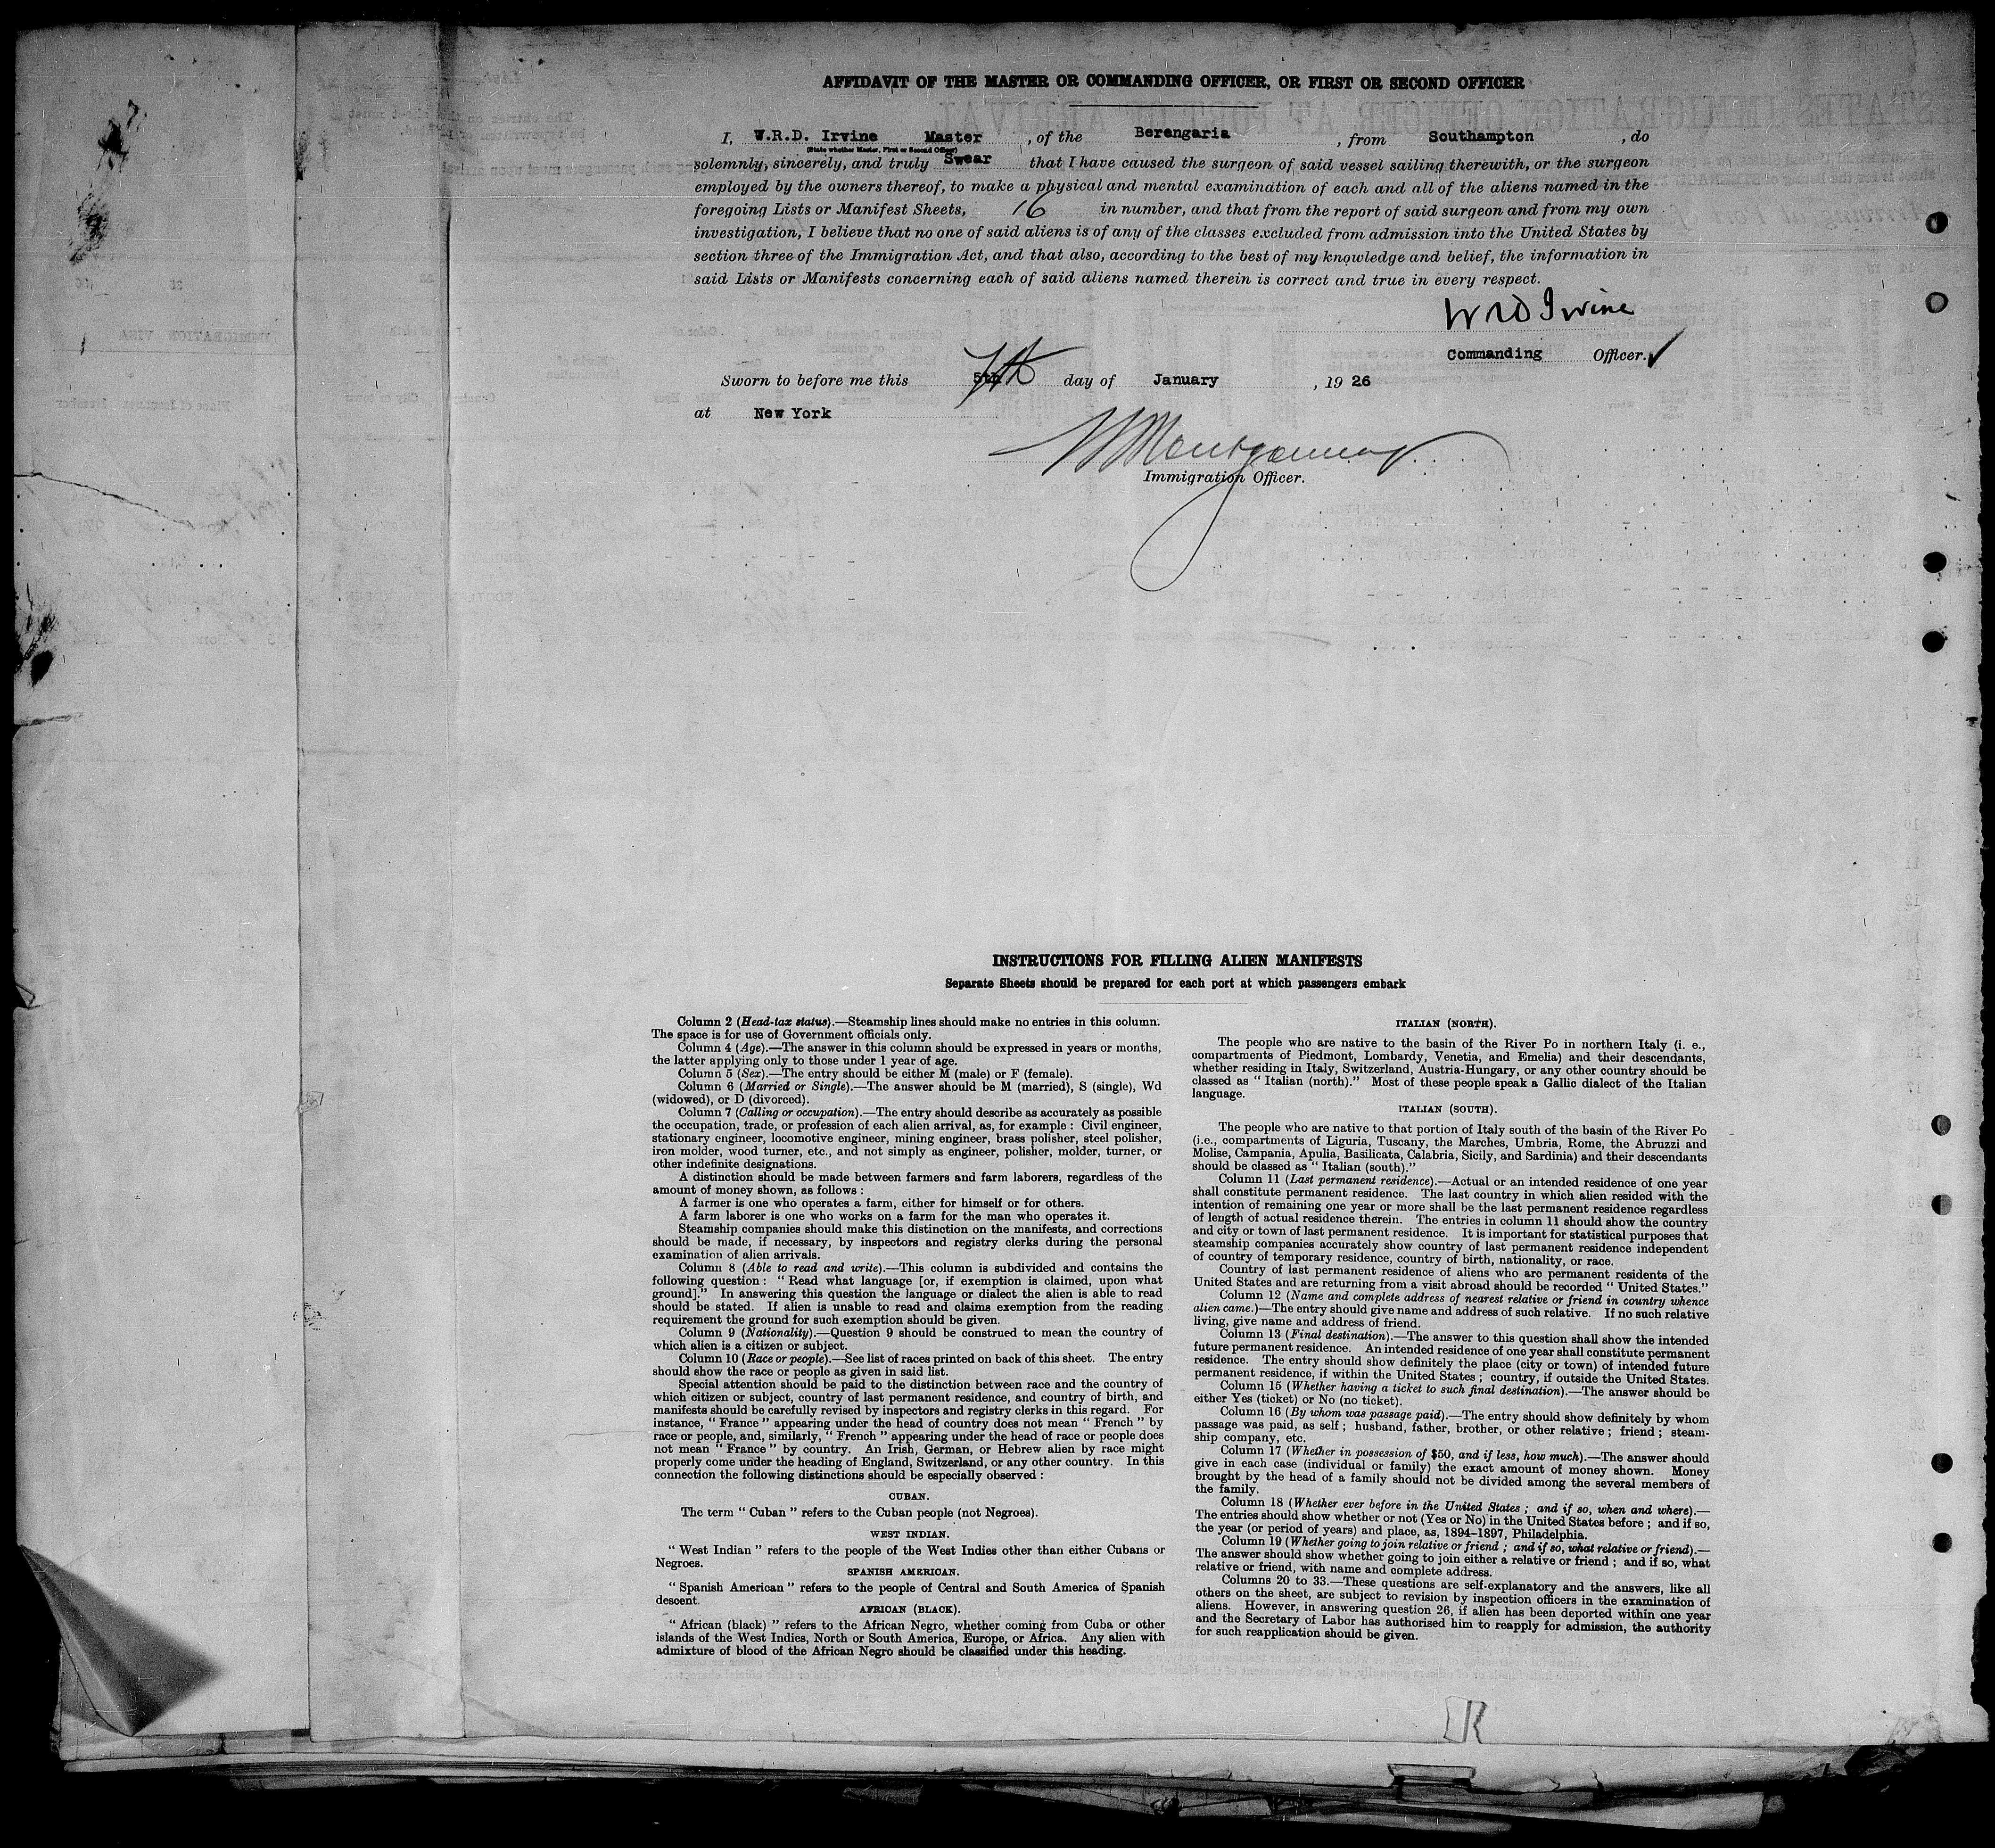 AFFIDAVIT OF THE MASTER OR COMMANDING OFFICER, OR FIRST OR SECOND OFFICER
I, W.R.D. Irvine Master, of the Berengaria, from Southampton, do
(State whether Master, First or Second Officer)
solemnly, sincerely, and truly Swear that I have caused the surgeon of said vessel sailing therewith, or the surgeon
employed by the owners thereof, to make a physical and mental examination of each and all of the aliens named in the
foregoing Lists or Manifest Sheets, 16 in number, and that from the report of said surgeon and from my own
investigation, I believe that no one of said aliens is of any of the classes excluded from admission into the United States by
section three of the Immigration Act, and that also, according to the best of my knowledge and belief, the information in
said Lists or Manifests concerning each of said aliens named therein is correct and true in every respect.
W R D Irvine
Commanding Officer.
Sworn to before me this 5th 7th day of January, 19 26
at New York
Montgomery
Immigration Officer.
INSTRUCTIONS FOR FILLING ALIEN MANIFESTS
Separate Sheets should be prepared for each port at which passengers embark
Column 2 (Head-tax status).—Steamship lines should make no entries in this column.
The space is for use of Government officials only.
Column 4 (Age).—The answer in this column should be expressed in years or months,
the latter applying only to those under 1 year of age.
Column 5 (Sex).—The entry should be either M (male) or F (female).
Column 6 (Married or Single).—The answer should be M (married), S (single), Wd
(widowed), or D (divorced).
Column 7 (Calling or occupation).—The entry should describe as accurately as possible
the occupation, trade, or profession of each alien arrival, as, for example : Civil engineer,
stationary engineer, locomotive engineer, mining engineer, brass polisher, steel polisher,
iron molder, wood turner, etc., and not simply as engineer, polisher, molder, turner, or
other indefinite designations.
A distinction should be made between farmers and farm laborers, regardless of the
amount of money shown, as follows :
A farmer is one who operates a farm, either for himself or for others.
A farm laborer is one who works on a farm for the man who operates it.
Steamship companies should make this distinction on the manifests, and corrections
should be made, if necessary, by inspectors and registry clerks during the personal
examination of alien arrivals.
Column 8 (Able to read and write).—This column is subdivided and contains the
following question : " Read what language [or, if exemption is claimed, upon what
ground]." In answering this question the language or dialect the alien is able to read
should be stated. If alien is unable to read and claims exemption from the reading
requirement the ground for such exemption should be given.
Column 9 (Nationality).—Question 9 should be construed to mean the country of
which alien is a citizen or subject.
Column 10 (Race or people).—See list of races printed on back of this sheet. The entry
should show the race or people as given in said list.
Special attention should be paid to the distinction between race and the country of
which citizen or subject, country of last permanent residence, and country of birth, and
manifests should be carefully revised by inspectors and registry clerks in this regard. For
instance, " France " appearing under the head of country does not mean " French " by
race or people, and, similarly, " French " appearing under the head of race or people does
not mean " France " by country. An Irish, German, or Hebrew alien by race might
properly come under the heading of England, Switzerland, or any other country. In this
connection the following distinctions should be especially observed :
CUBAN.
The term " Cuban " refers to the Cuban people (not Negroes).
WEST INDIAN.
" West Indian " refers to the people of the West Indies other than either Cubans or
Negroes.
SPANISH AMERICAN.
" Spanish American " refers to the people of Central and South America of Spanish
descent.
AFRICAN (BLACK).
" African (black) " refers to the African Negro, whether coming from Cuba or other
islands of the West Indies, North or South America, Europe, or Africa. Any alien with
admixture of blood of the African Negro should be classified under this heading.
ITALIAN (NORTH).
The people who are native to the basin of the River Po in northern Italy (i. e.,
compartments of Piedmont, Lombardy, Venetia, and Emelia) and their descendants,
whether residing in Italy, Switzerland, Austria-Hungary, or any other country should be
classed as " Italian (north)." Most of these people speak a Gallic dialect of the Italian
language.
ITALIAN (SOUTH).
The people who are native to that portion of Italy south of the basin of the River Po
(i.e., compartments of Liguria, Tuscany, the Marches, Umbria, Rome, the Abruzzi and
Molise, Campania, Apulia, Basilicata, Calabria, Sicily, and Sardinia) and their descendants
should be classed as " Italian (south)."
Column 11 (Last permanent residence).—Actual or an intended residence of one year
shall constitute permanent residence. The last country in which alien resided with the
intention of remaining one year or more shall be the last permanent residence regardless
of length of actual residence therein. The entries in column 11 should show the country
and city or town of last permanent residence. It is important for statistical purposes that
steamship companies accurately show country of last permanent residence independent
of country of temporary residence, country of birth, nationality, or race.
Country of last permanent residence of aliens who are permanent residents of the
United States and are returning from a visit abroad should be recorded " United States."
Column 12 (Name and complete address of nearest relative or friend in country whence
alien came.)—The entry should give name and address of such relative. If no such relative
living, give name and address of friend.
Column 13 (Final destination).—The answer to this question shall show the intended
future permanent residence. An intended residence of one year shall constitute permanent
residence. The entry should show definitely the place (city or town) of intended future
permanent residence, if within the United States ; country, if outside the United States.
Column 15 (Whether having a ticket to such final destination).—The answer should be
either Yes (ticket) or No (no ticket).
Column 16 (By whom was passage paid).—The entry should show definitely by whom
passage was paid, as self ; husband, father, brother, or other relative ; friend ; steam-
ship company, etc.
Column 17 (Whether in possession of $50, and if less, how much).—The answer should
give in each case (individual or family) the exact amount of money shown. Money
brought by the head of a family should not be divided among the several members of
the family.
Column 18 (Whether ever before in the United States ; and if so, when and where).—
The entries should show whether or not (Yes or No) in the United States before ; and if so,
the year (or period of years) and place, as, 1894–1897, Philadelphia.
Column 19 (Whether going to join relative or friend ; and if so, what relative or friend).—
The answer should show whether going to join either a relative or friend ; and if so, what
relative or friend, with name and complete address.
Columns 20 to 33.—These questions are self-explanatory and the answers, like all
others on the sheet, are subject to revision by inspection officers in the examination of
aliens. However, in answering question 26, if alien has been deported within one year
and the Secretary of Labor has authorised him to reapply for admission, the authority
for such reapplication should be given.